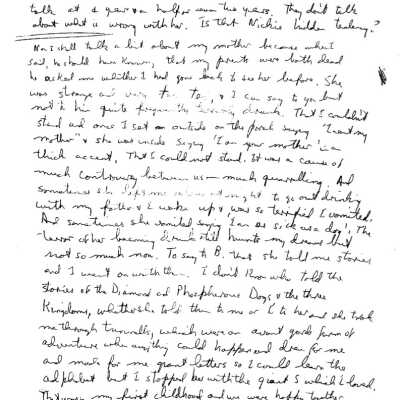 talk at a year & a half or even two years. They don't talk
about what is wrong with her. Is that Nickie hidden tealeny?
Now I shall talk a bit about my mother because when I
said, he should have known, that my parents were both dead
he asked me whether I had gone back to see her before. She
was strange and very far too, & I can say to you but
not to him quite frequently drunk. That I couldn't
stand and once I sat on outside on the porch saying "I want my
mother" & she was inside saying 'I am your mother' in a
thick accent. That I could not stand. It was a cause of
much controversy between us — much quarrelling. And
sometimes she at night to go out drinking
with my father & I woke up & was so terrified I vomited.
And sometimes she vomited saying 'I am as sick as a dog'. The
terror of her becoming drunk still haunts my dreams but
not so much now. To say to B. that she told me stories
and I went on with them. I don't know who told the
stories of the Diamond and Phosphorous Dogs & the three
Kingdoms, whether she told them to me or I to her and she took
me through tunnels, which were an avant garde form of
adventure where anything could happen and drew for me
and made for me giant letters so I could learn the
alphabet but I stopped her with the giant S which I loved.
That was my first childhood and we were happy together